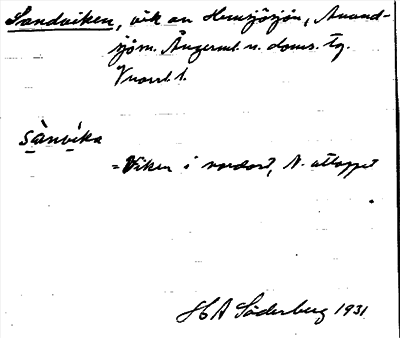 Sandviken, vik av Hemsjösjön, Anund-
sjö sn. Ångerml. n. doms. Tg.
Vnorrl. l.
sànvika
= Viken i nordost, N. utloppet
H A Söderberg 1931